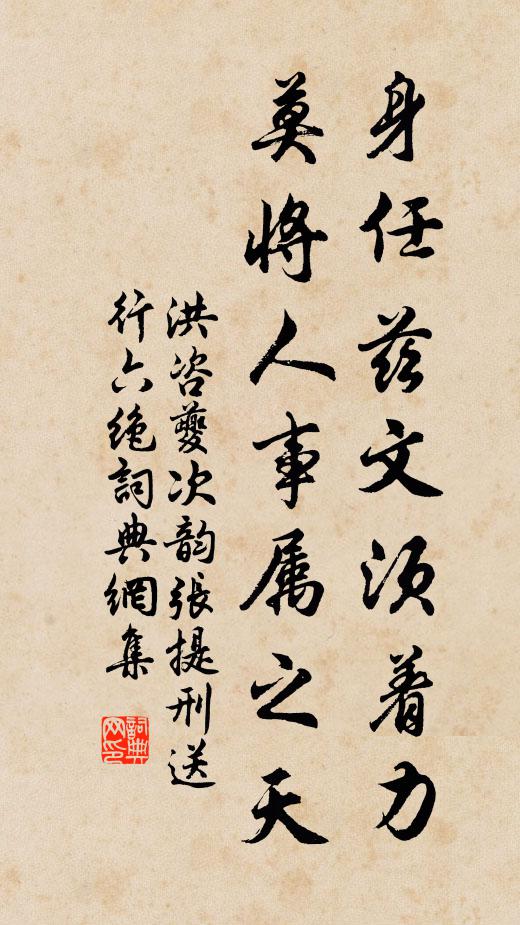 身任兹文须着力
莫将人事属之天
洪咨夔次韵張提刑送
行六绝詞典網集
詞典网印